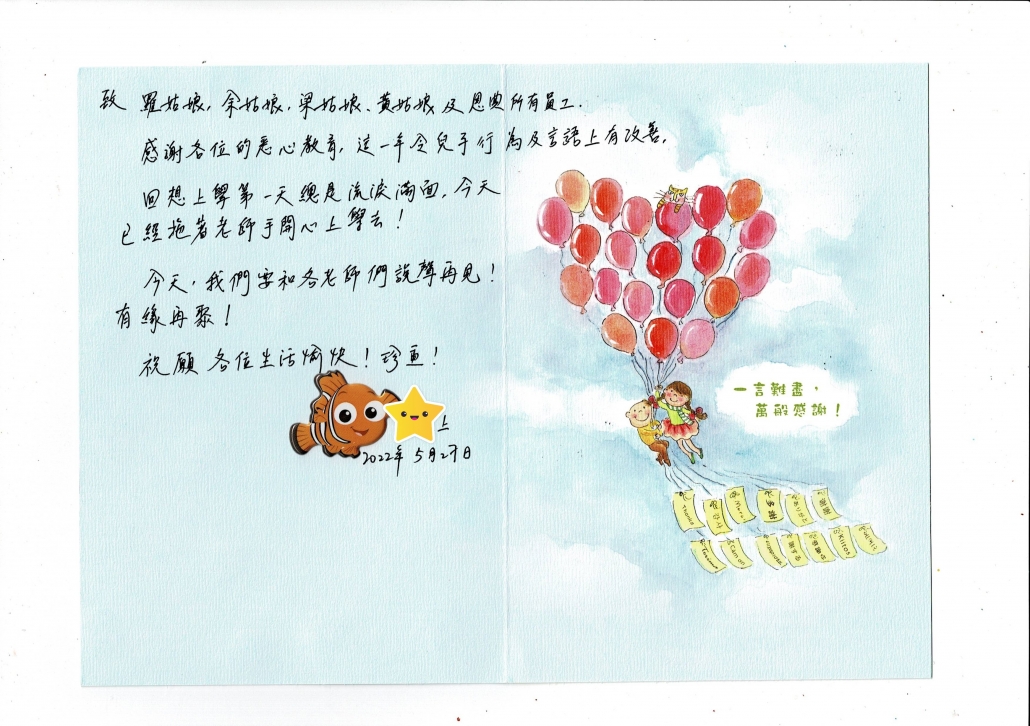 致 羅姑娘, 余姑娘, 梁姑娘、黃姑娘 及 恩典所有員工.
感謝各位的悉心教育, 這一年令兒子行為及言語上有改善,
回想上學第一天總是流淚滿面, 今天
已經拖著老師手開心上學去!
今天, 我們要和各老師們說聲再見!
有緣再聚!
祝願 各位生活愉快! 珍重!
上
2022年5月27日
一言難盡,
萬般感謝!